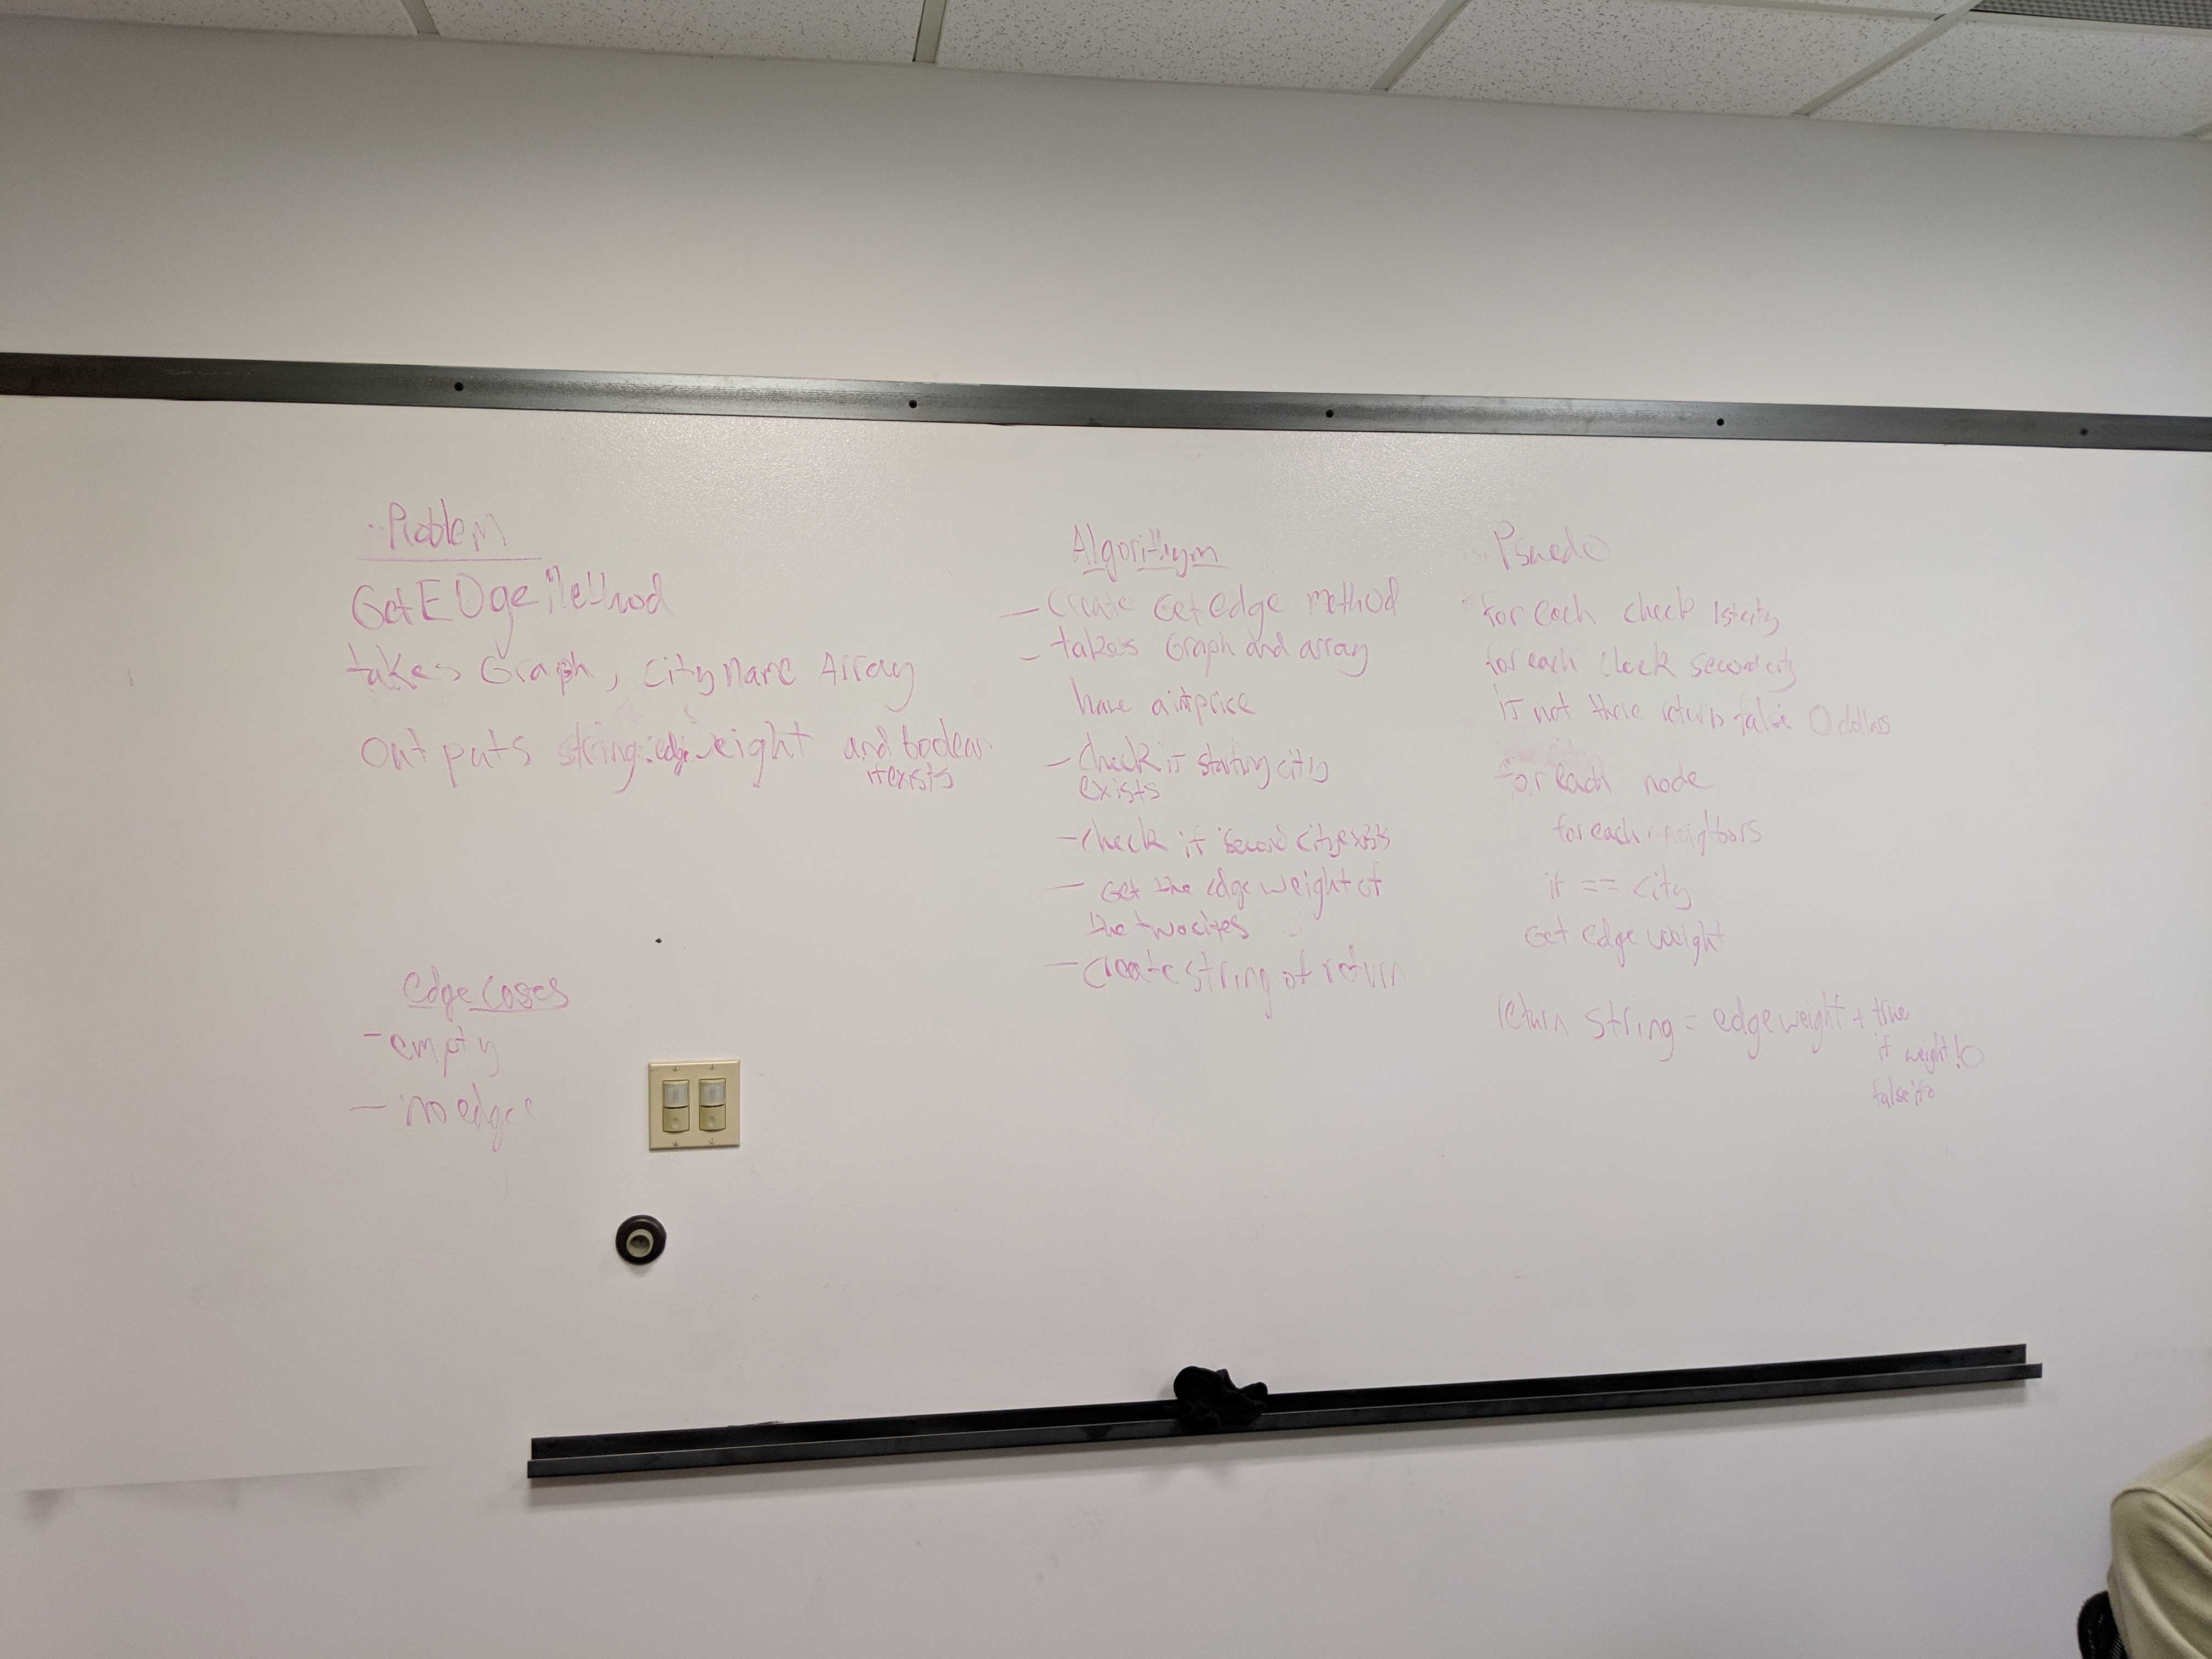 Problem
GetEDge Method
takes Graph, City Name Array
Outputs string: edge weight and boolean
if exists
edge cases
- empty
- no edges
Algorithym
- Create Get edge method
- takes Graph and array
have a int price
- check if starting city
exists
- check if second city exists
- Get the edge weight of
the two cites
- Create string of return
Psuedo
for each check 1st city
for each check second city
if not there return false 0 dollars
for each node
for each neighbors
if == city
Get edge weight
return string = edgeweight + true
if weight !0
false if 0